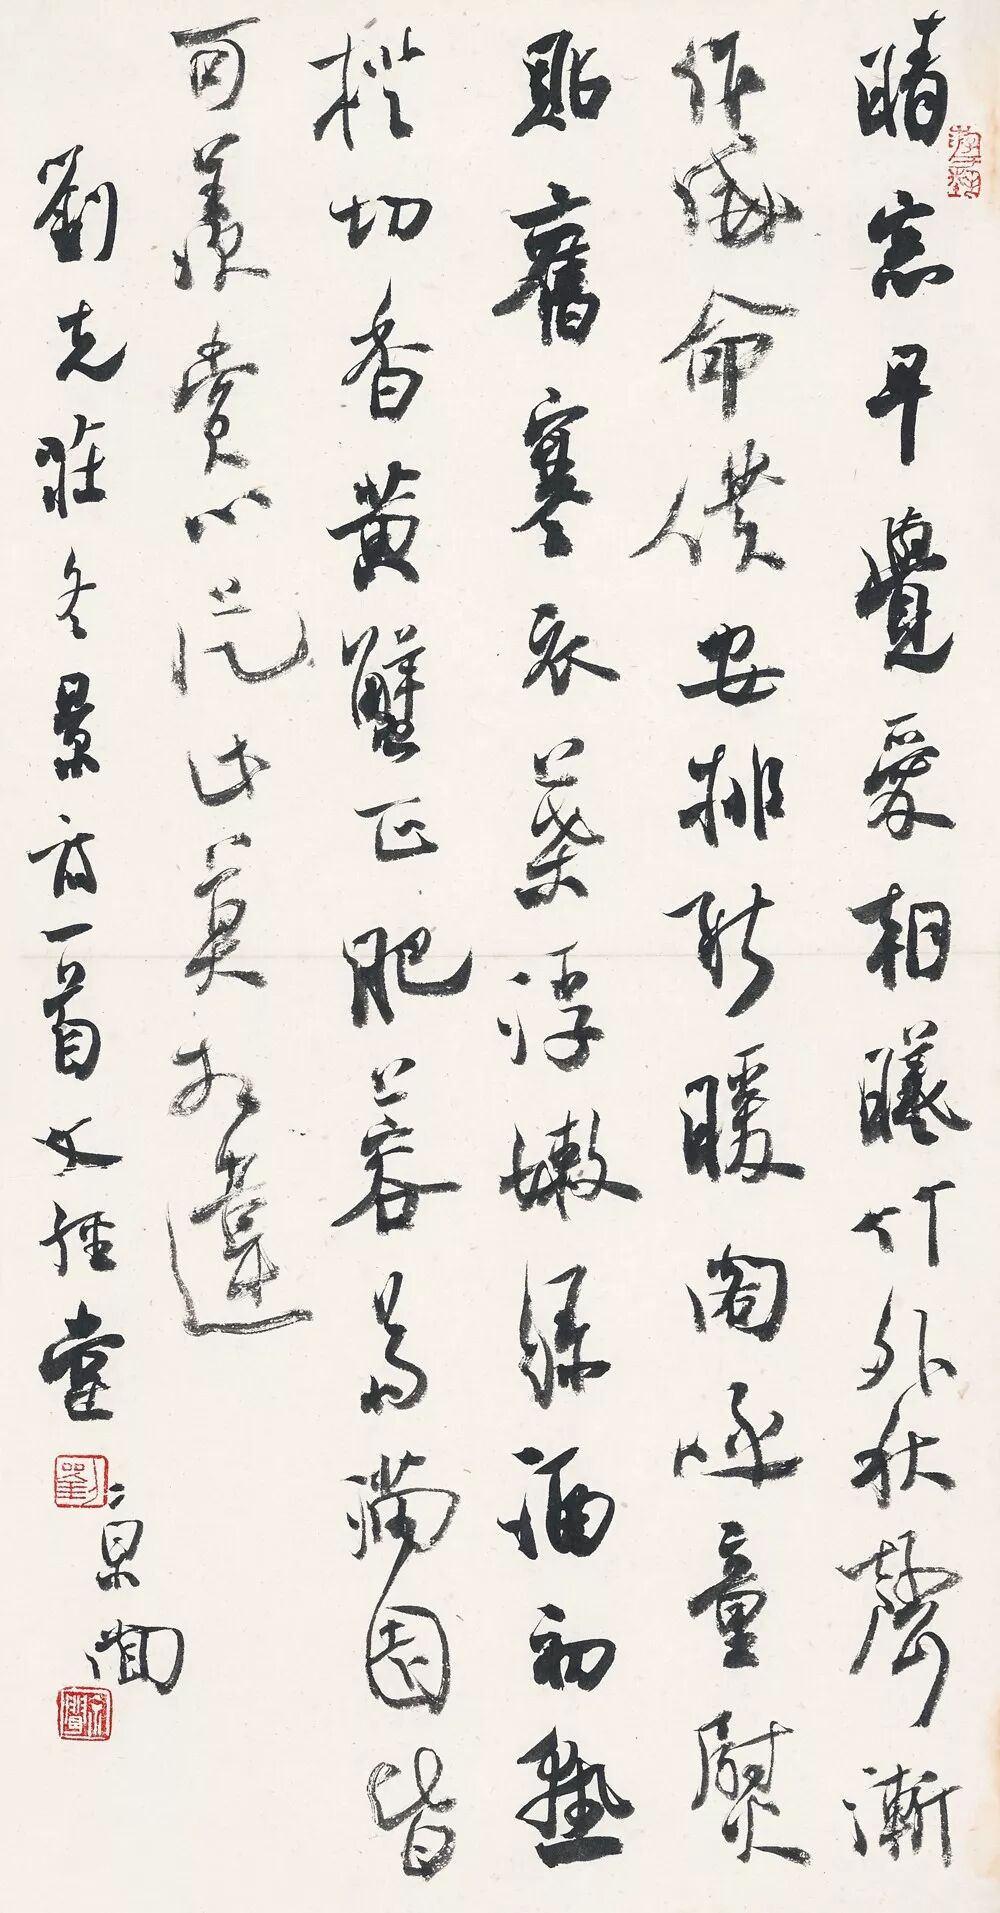 晴窓早覺愛朝曦竹外秋聲漸
作威命僕安排新暖閣呼童熨
貼舊寒衣葉浮嫩綠酒初熟
橙切香黃蟹正肥蓉菊滿園皆
可羨賞心從此莫相違
劉克莊冬景詩一首文堂
京聞
劉
京聞